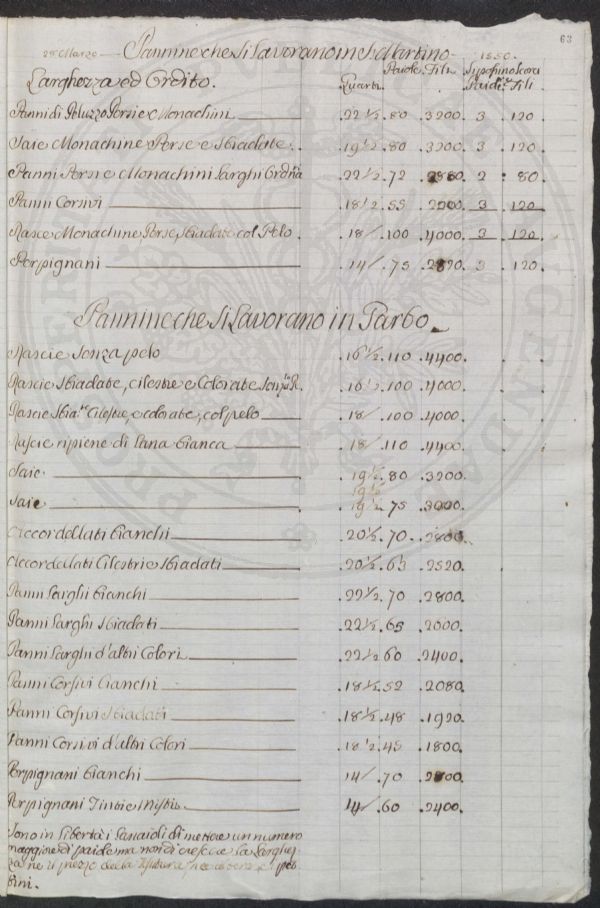 63
28 Marzo Pannine che si Lavorano in S. Martino 1550.
Larghezza ed Ordito. Quarti Paiole. Fili
Panni di Peluzzo Persi e Monachini .22½. 80 .3200. 3 . 120 .
Saie Monachine Perse e Sbiadate . 19½. 80 .3200. 3 . 120 .
Panni Persi e Monachini Larghi Ord.ri .22½. 72 . 2 . 80 .
Panni Corsivi .18½. 55 .2200. 3 . 120
Rasce Monachine Perse, Sbiadate col Pelo . 18/ .100 .4000. 3 . 120.
Perpignani . 14/ . 75 . 3 . 120.
Pannine che si Lavorano in Garbo
Rascie Senza pelo . 16½. 110 .4400.
Rascie Sbiadate, cilestre e Colorate . 16½. 100 .4000.
Rascie Sbia.te Cilestre, e colorate, col pelo . 18/ .100 .4000.
Rascie ripiene di Lana bianca . 18/ .110 .4400.
Saie . 19½. 80 .3200.
19½
Saie . 19½. 75 .3000.
Accordellati bianchi .20½. 70 .2800.
Accordellati Cilestri e Sbiadati .20½. 63 .2520.
Panni Larghi bianchi .22½. 70 .2800.
Panni Larghi Sbiadati .22½. 65 .2000.
Panni Larghi d'altri Colori .22½. 60 .2400.
Panni Corsivi bianchi .18½. 52 .2080.
Panni Corsivi Sbiadati .18½. 48 .1920.
Panni Corsivi d'altri Colori .18½. 45 .1800.
Perpignani bianchi . 14/ . 70 .2800.
Perpignani Tinti e Misti . 14/ . 60 .2400.
Sono in libertà i Lanaioli di mettere un numero
maggiore di paiole ma non di crescere la larghez-
za ne il prezzo della tessitura